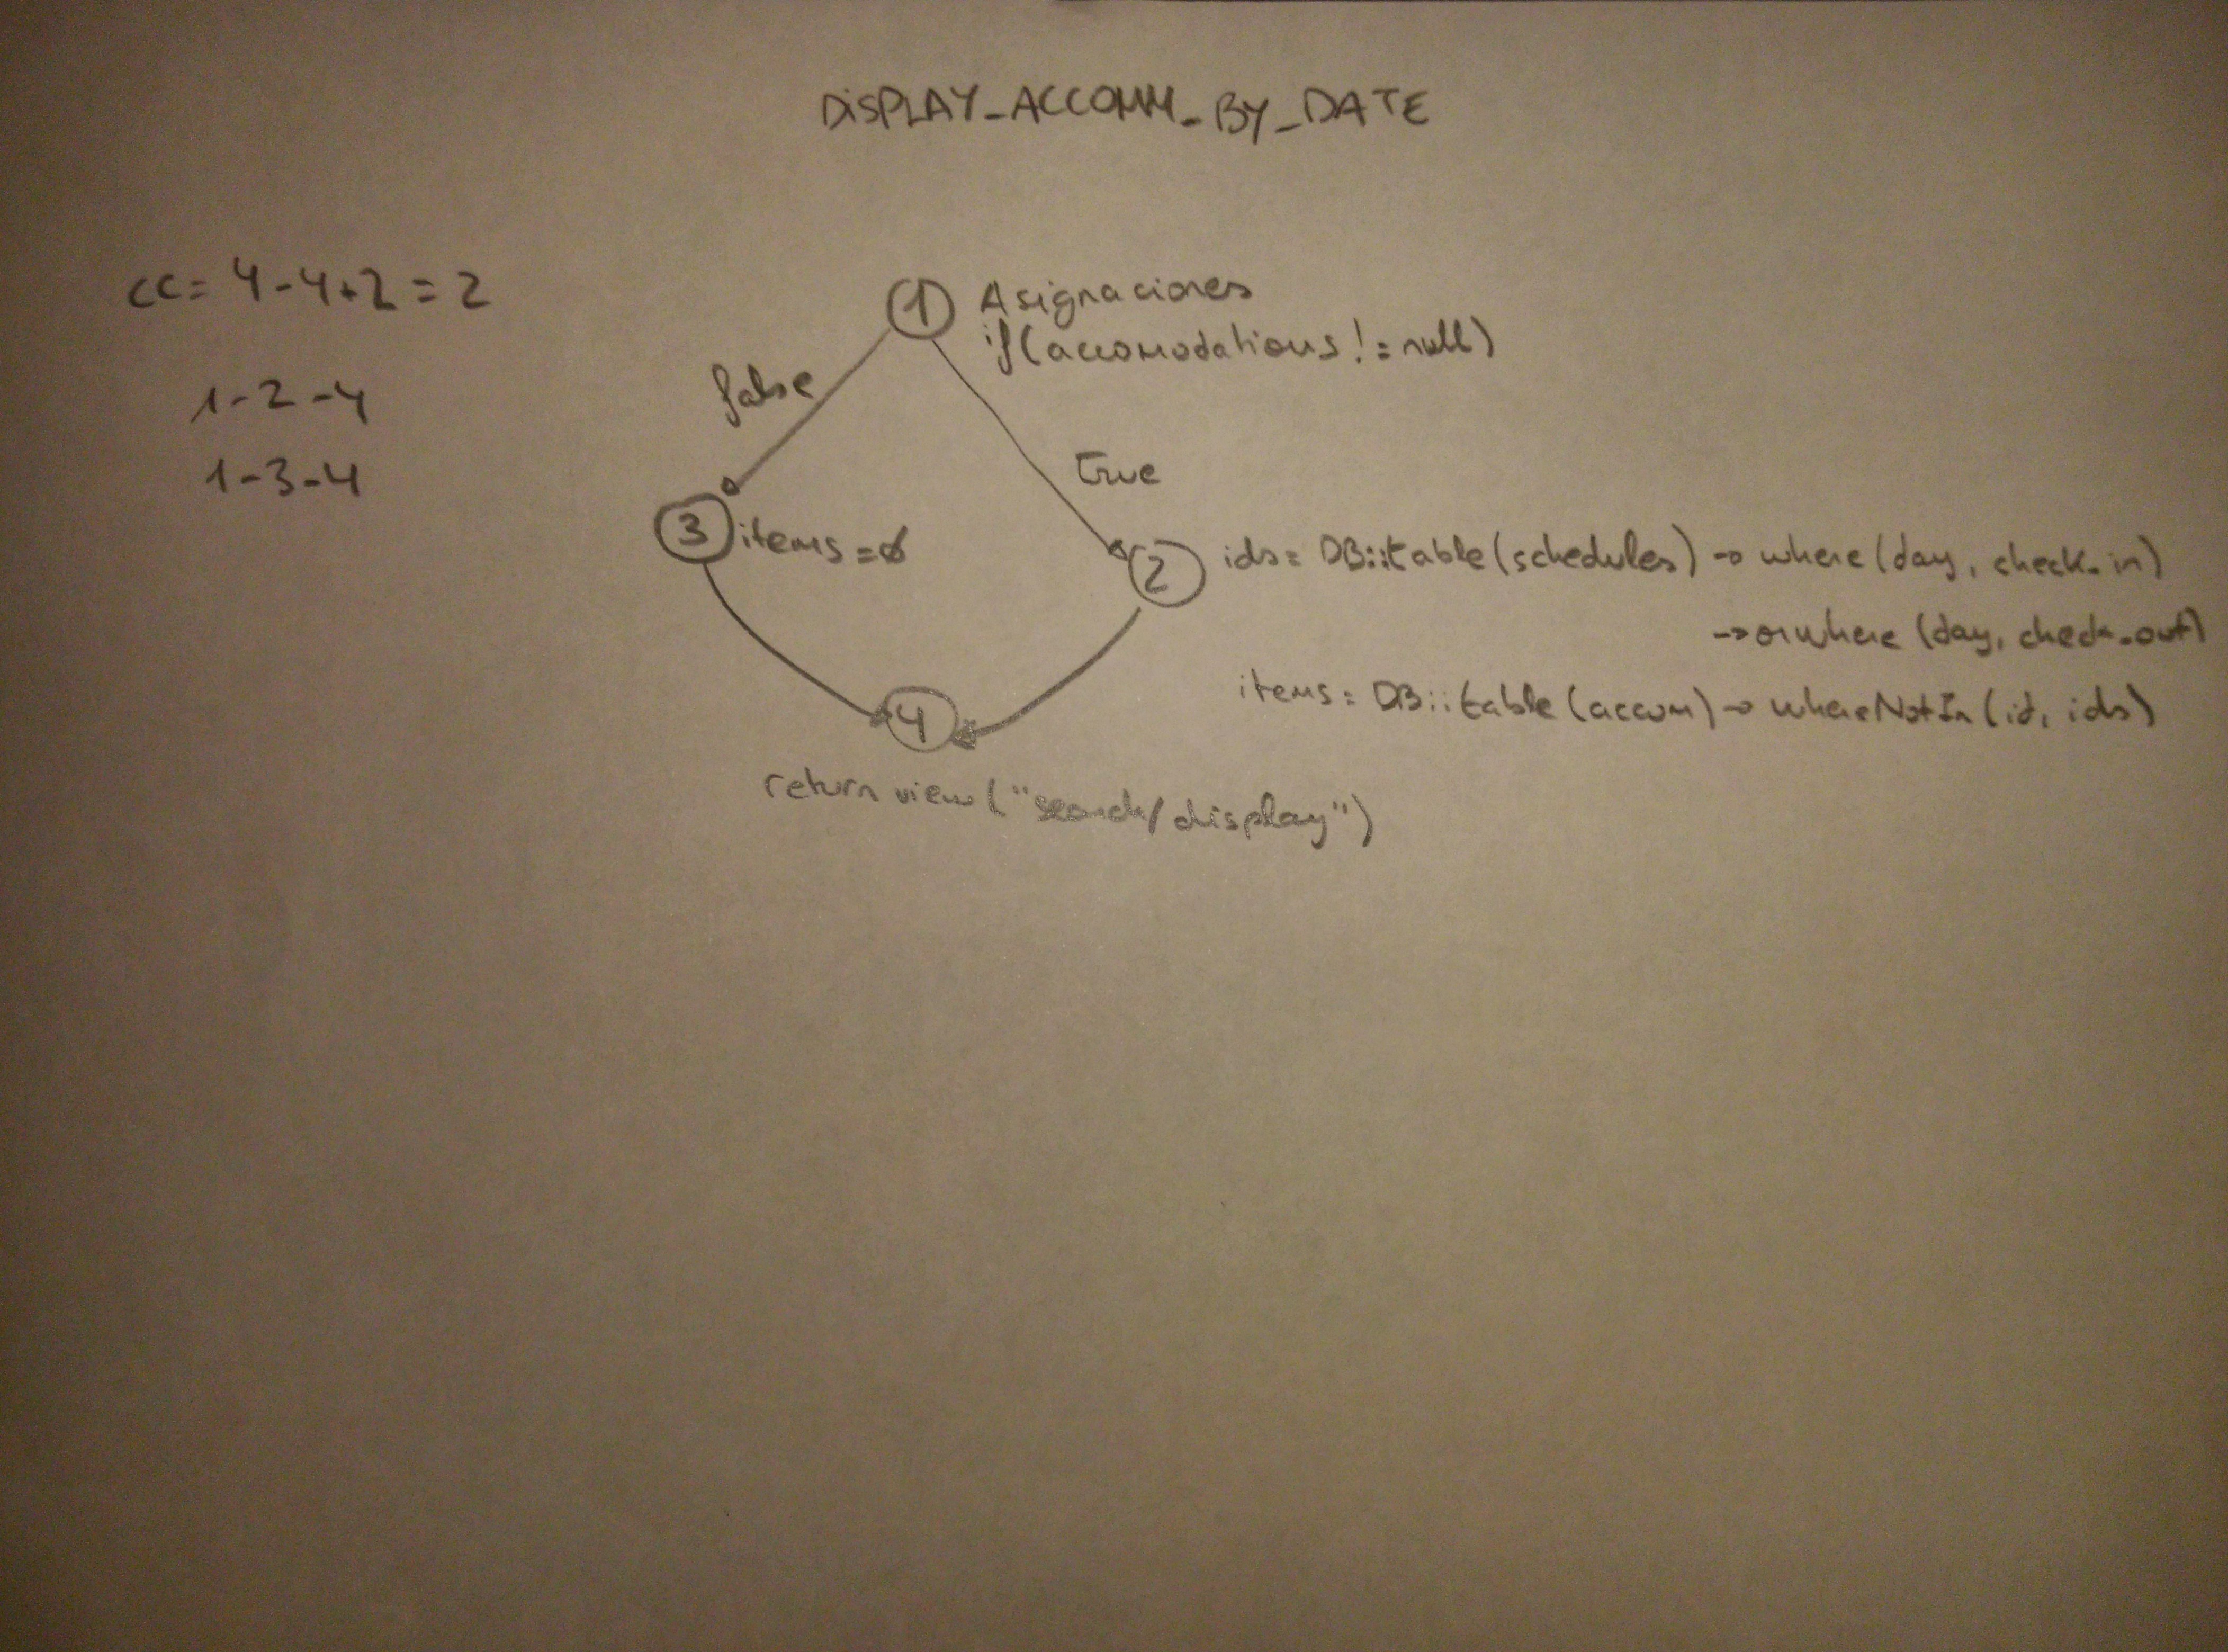 DISPLAY_ACCOMM_BY_DATE
CC= 4-4+2=2
1-2-4
1-3-4
1 Asignaciones
if(accomodations!=null)
false
true
3 items=∅
2 ids= DB::table(schedules)→where(day, check_in)
→orwhere(day, check_out)
items= DB::table(accom)→whereNotIn(id, ids)
4
return view("search/display")